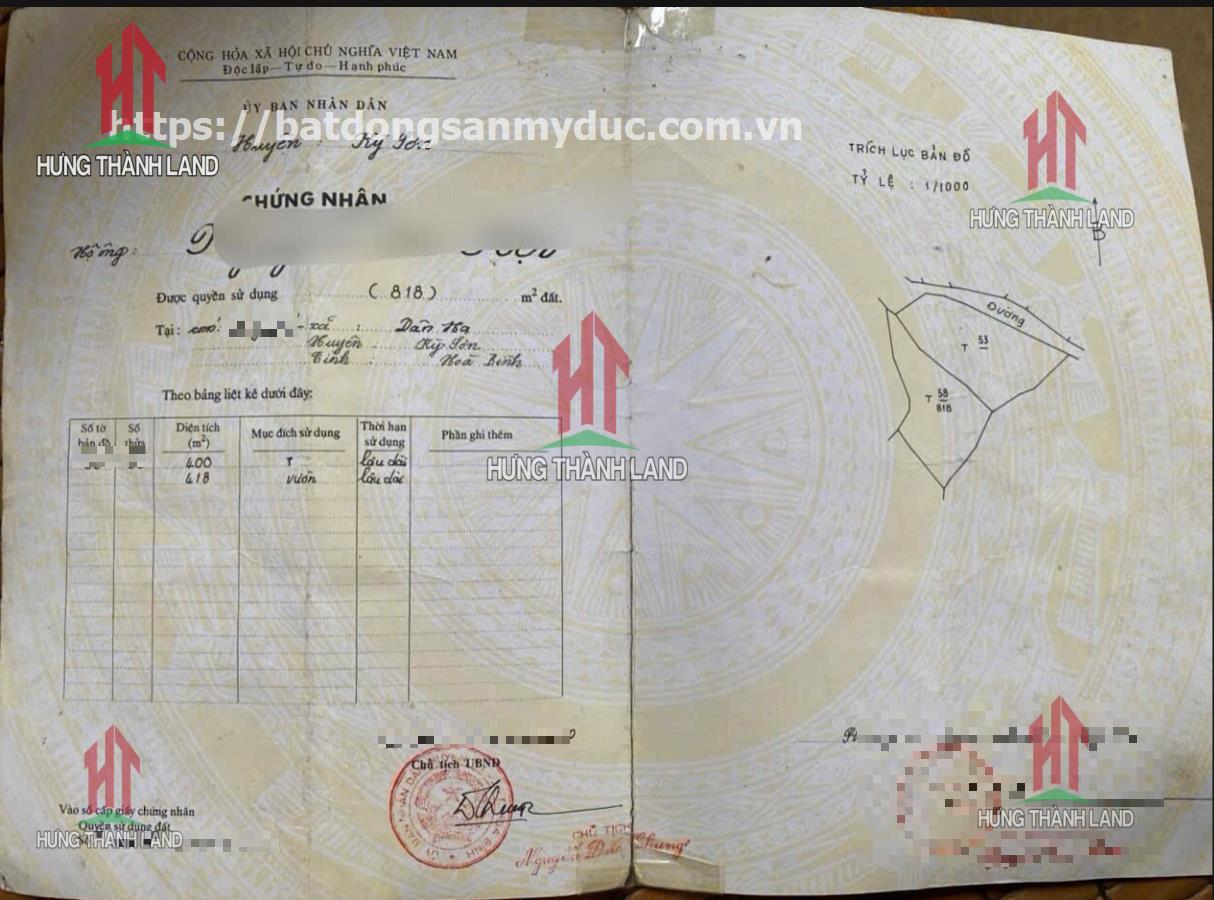 CỘNG HÒA XÃ HỘI CHỦ NGHĨA VIỆT NAM
Độc lập — Tự do — Hạnh phúc
ỦY BAN NHÂN DÂN
https://batdongsanmyduc.com.vn
Huyện : Kỳ Sơn
HƯNG THÀNH LAND
CHỨNG NHẬN
Hộ ông:
Được quyền sử dụng (818) m² đất.
Tại: xã : Dân Hạ
Huyện : Kỳ Sơn
Tỉnh : Hoà Bình
Theo bảng liệt kê dưới đây:
Số tờ bản đồ Số thửa Diện tích (m²) Mục đích sử dụng Thời hạn sử dụng Phần ghi thêm
400 T lâu dài
418 vườn lâu dài
HƯNG THÀNH LAND
Chủ tịch UBND
CHỦ TỊCH
Vào sổ cấp giấy chứng nhận
Quyền sử dụng đất
HƯNG THÀNH LAND
TRÍCH LỤC BẢN ĐỒ
TỶ LỆ : 1/1000
HƯNG THÀNH LAND
B
Đường
T 53
T 58
818
HƯNG THÀNH LAND